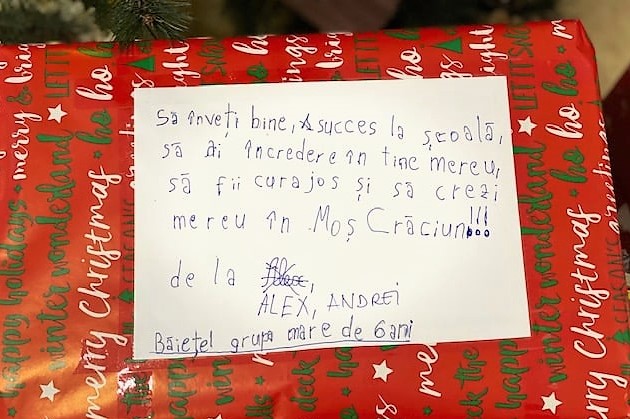 Să înveți bine, succes la școală,
să ai încredere în tine mereu,
să fii curajos și să crezi
mereu în Moș Crăciun!!!
de la Alex,
ALEX, ANDREI
Băiețel grupa mare de 6 ani
happy holidays
winter wonderland
merry Christmas
merry & bright
ho ho ho
LET IT SNOW
merry Christmas
winter wonderland
ho ho ho
greetings
deck the